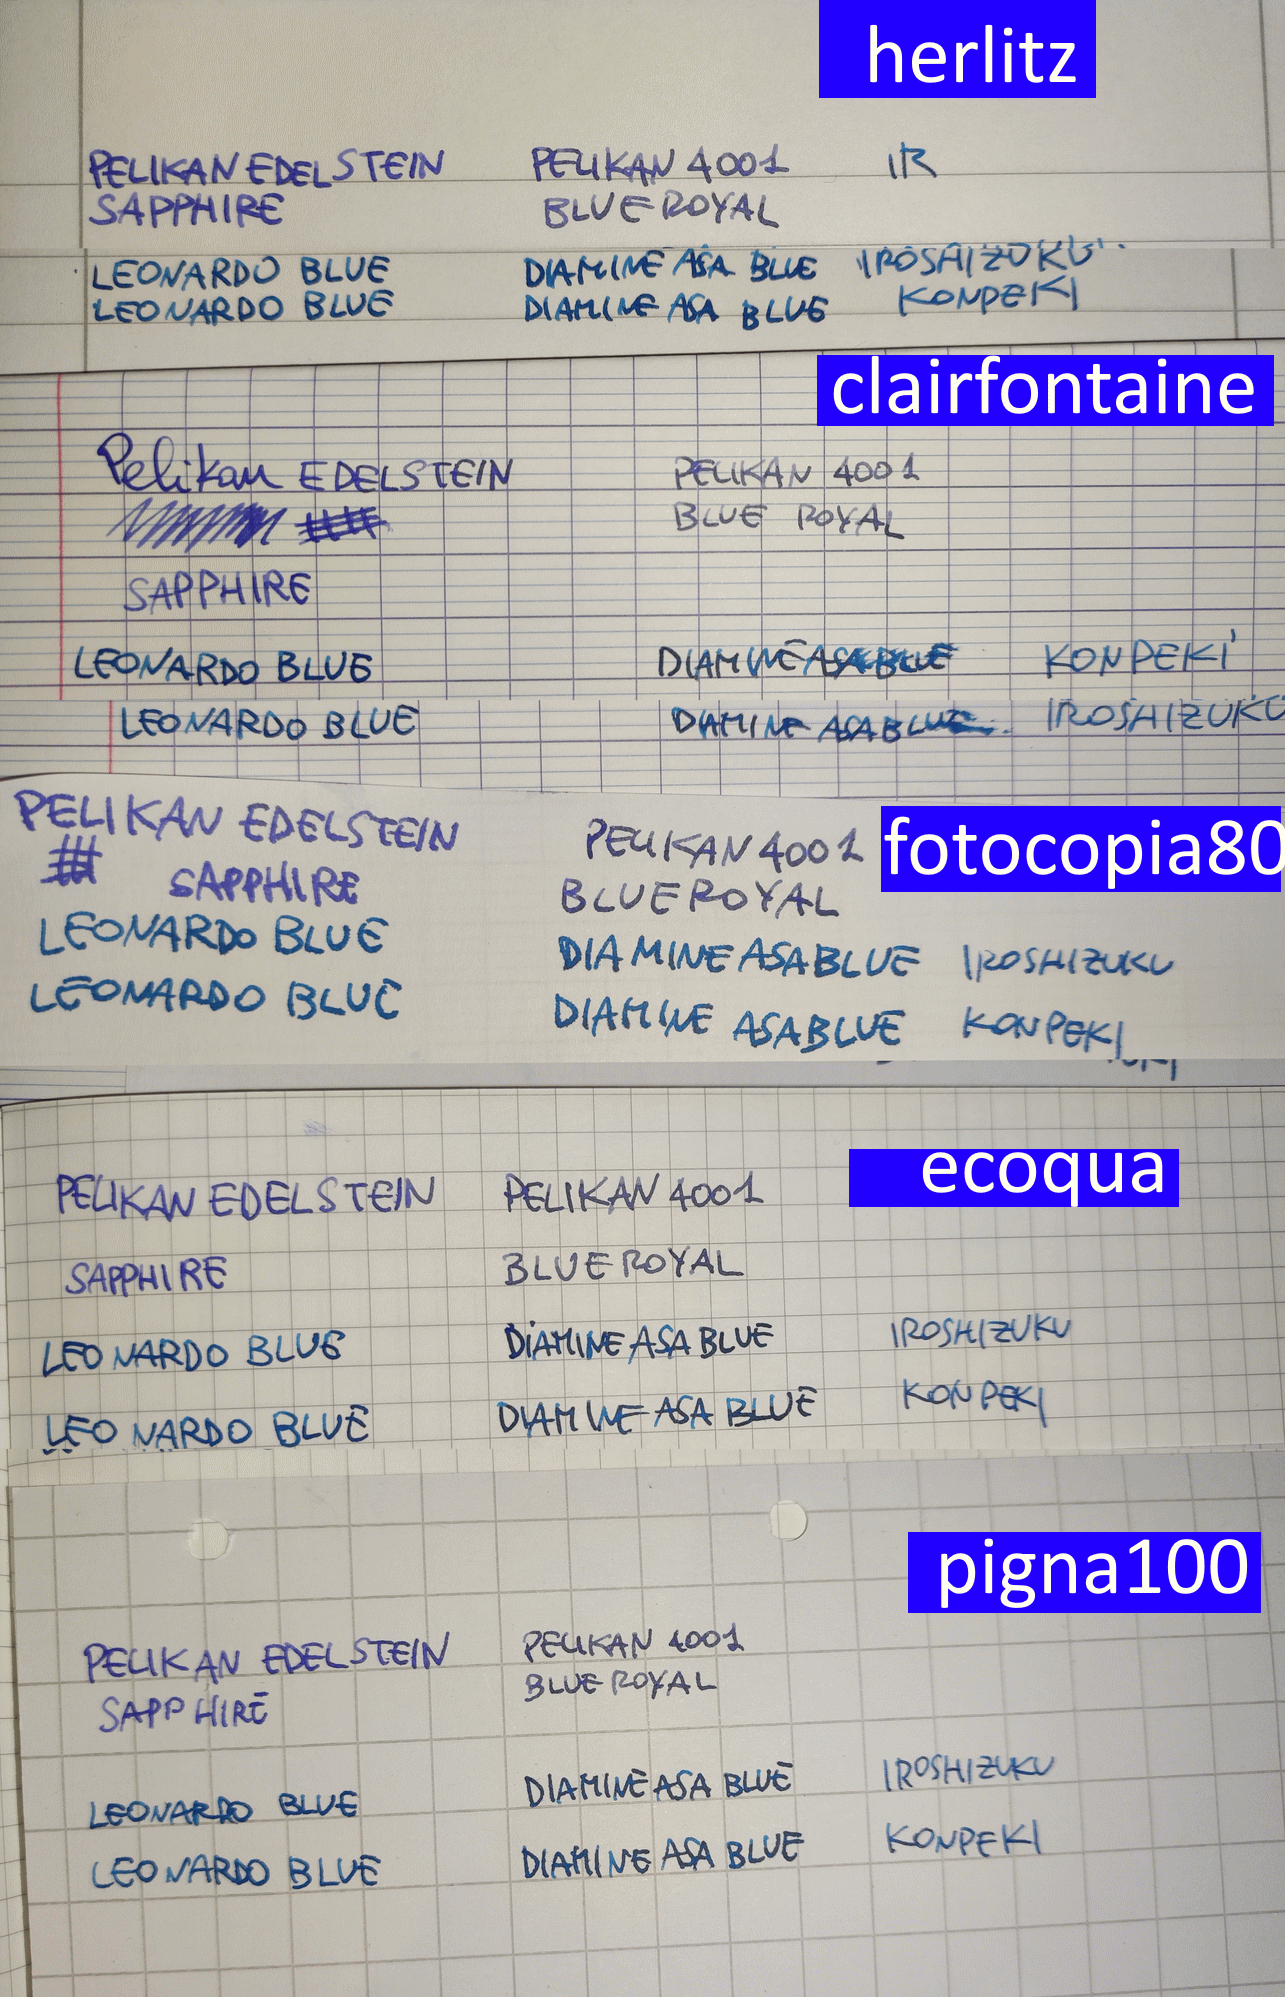 herlitz
PELIKAN EDELSTEIN PELIKAN 4001 IR
SAPPHIRE BLUE ROYAL
LEONARDO BLUE DIAMINE ASA BLUE IROSHIZUKU
LEONARDO BLUE DIAMINE ASA BLUE KONPEKI
clairfontaine
Pelikan EDELSTEIN PELIKAN 4001
BLUE ROYAL
SAPPHIRE
LEONARDO BLUE DIAMINE ASA BLUE KONPEKI
LEONARDO BLUE DIAMINE ASA BLUE IROSHIZUKU
fotocopia80
PELIKAN EDELSTEIN PELIKAN 4001
SAPPHIRE BLUE ROYAL
LEONARDO BLUE DIAMINE ASA BLUE IROSHIZUKU
LEONARDO BLUE DIAMINE ASA BLUE KONPEKI
ecoqua
PELIKAN EDELSTEIN PELIKAN 4001
SAPPHIRE BLUE ROYAL
LEONARDO BLUE DIAMINE ASA BLUE IROSHIZUKU
LEONARDO BLUE DIAMINE ASA BLUE KONPEKI
pigna100
PELIKAN EDELSTEIN PELIKAN 4001
SAPPHIRE BLUE ROYAL
LEONARDO BLUE DIAMINE ASA BLUE IROSHIZUKU
LEONARDO BLUE DIAMINE ASA BLUE KONPEKI